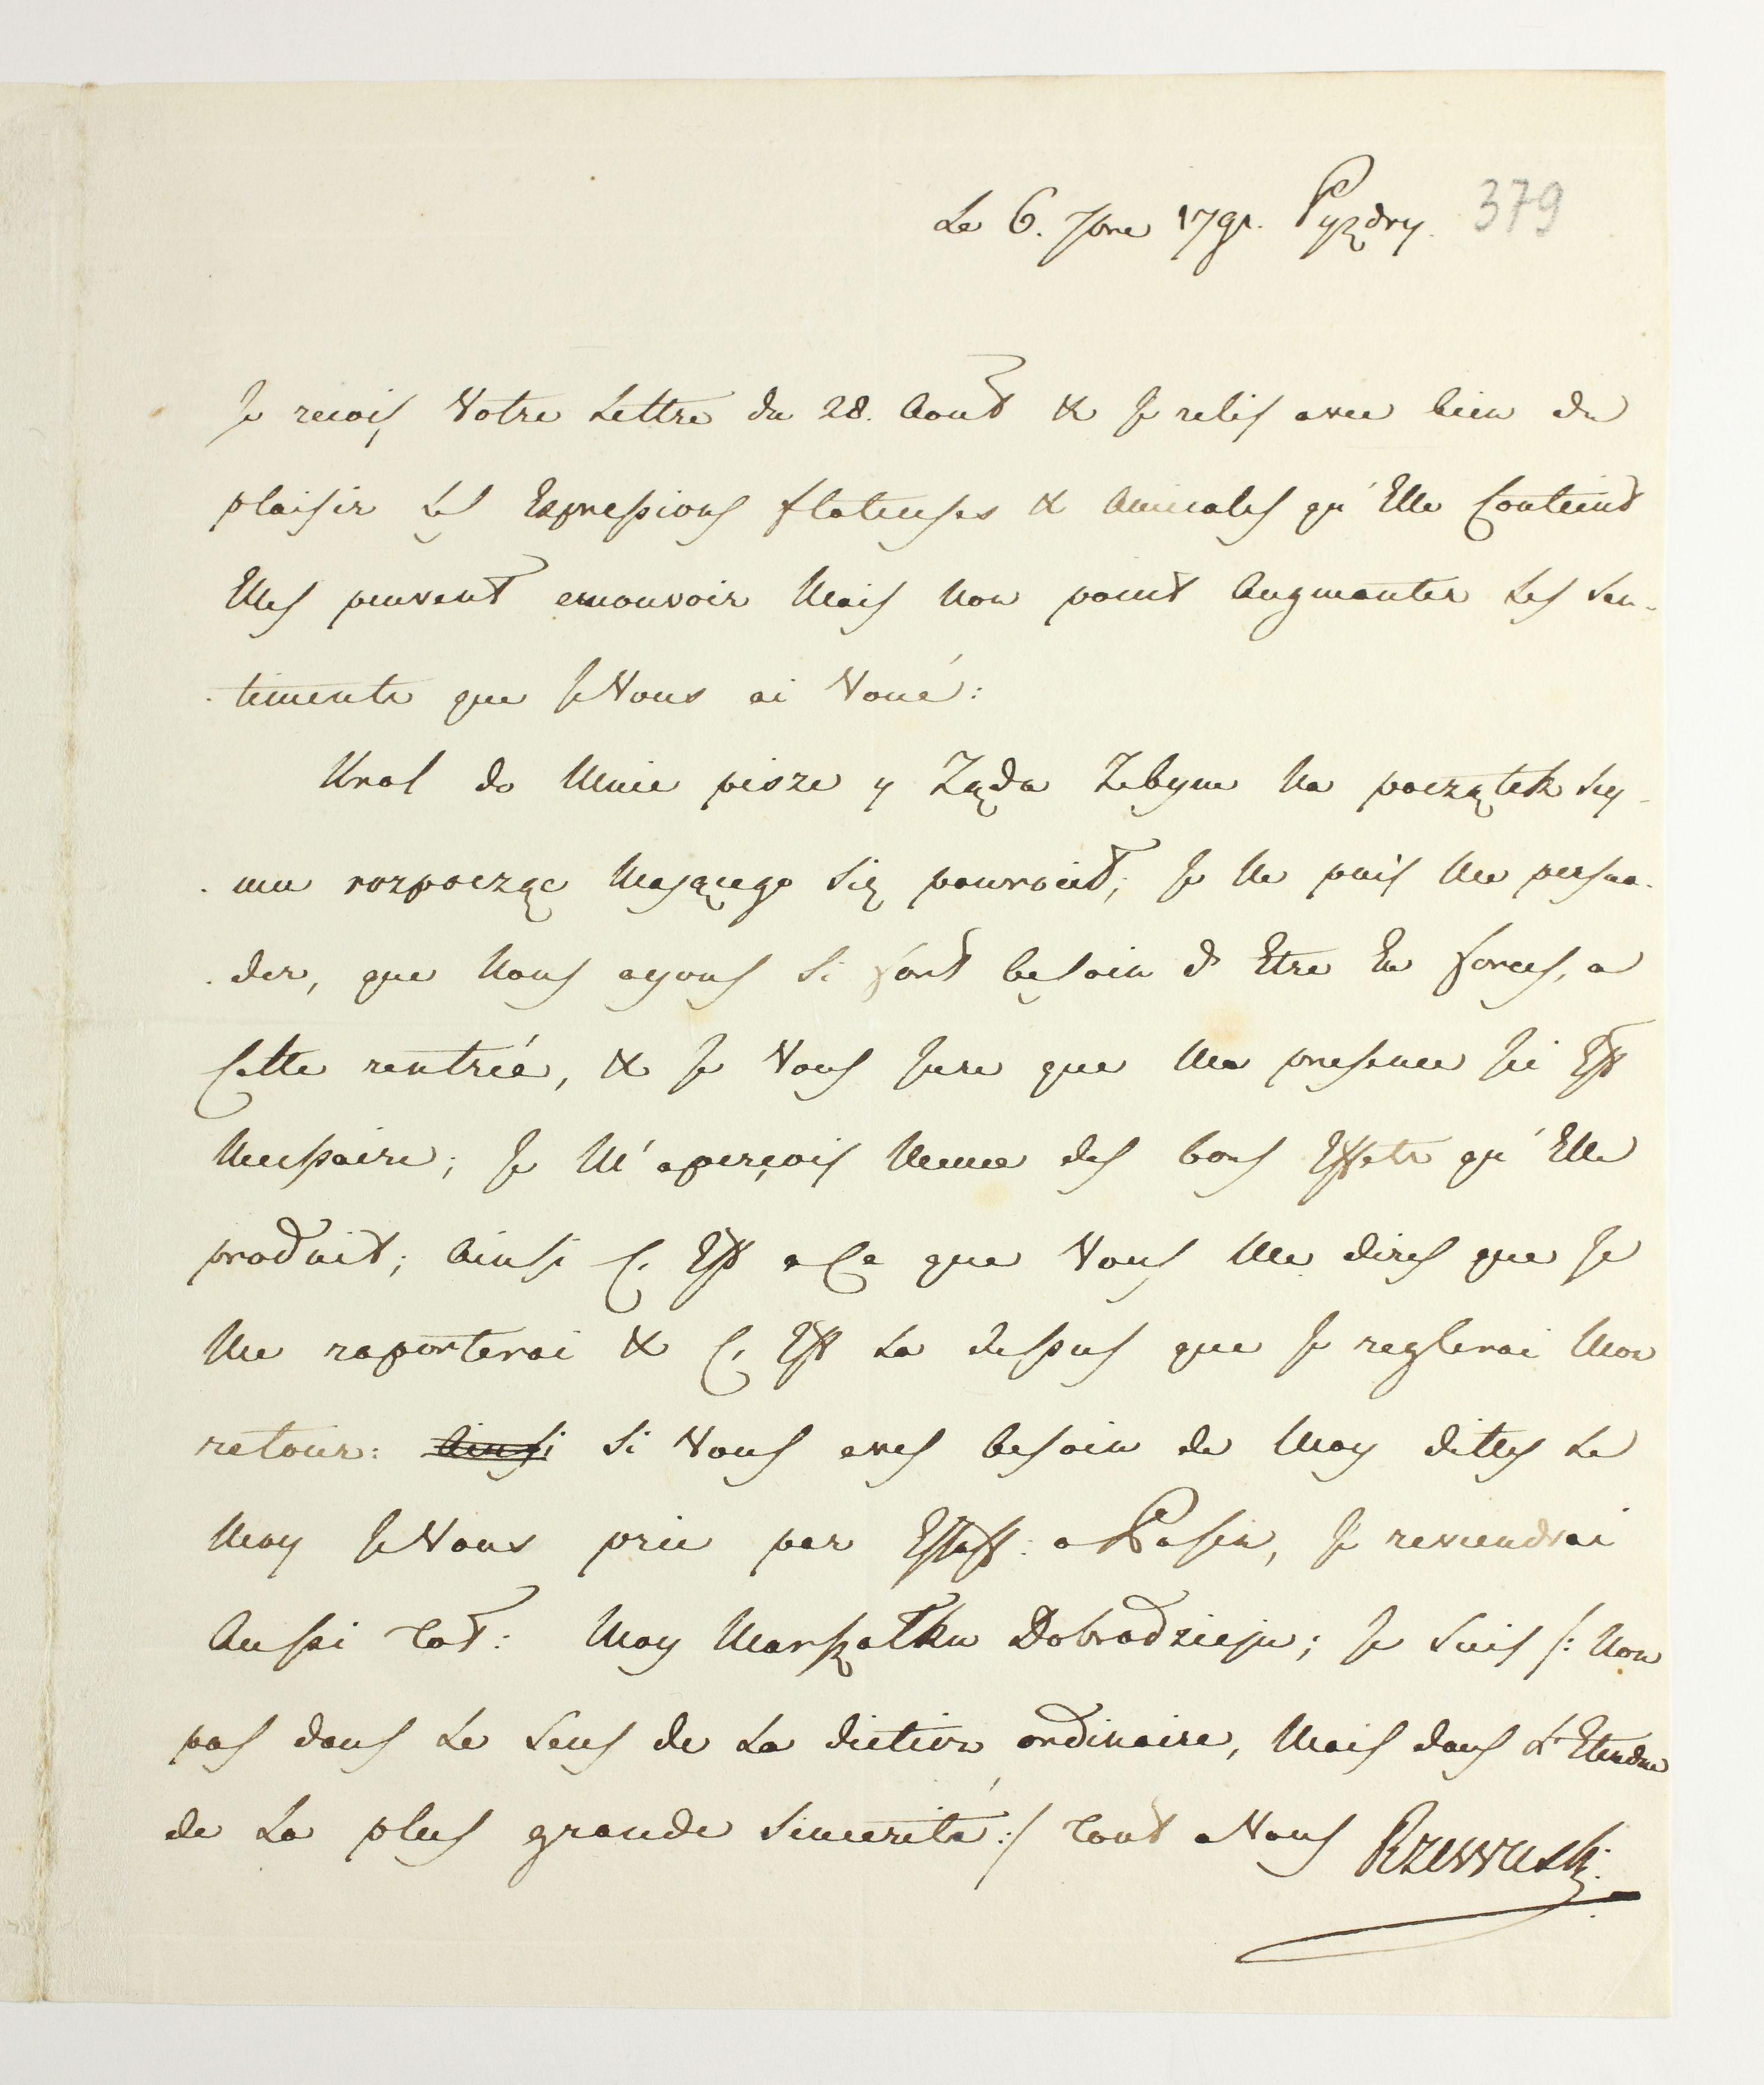 Le 6. 7bre 1791. Pyzdry. 379
Je reçois Votre Lettre du 28. Aout & Je relis avec bien du
plaisir Les Expressions flateuses & Amicales qu'Elle Contient
Elles peuvent emouvoir Mais Non point Augmanter Les Sen-
timents que Je Vous ai Voué:
Krol do Mnie pisze y Ząda Zebym Na początek Sey-
mu rozpocząc Mającego Się powrocił; Je Ne puis Me persua-
der, que Nous ayons Si fort besoin d'Etre En forces, a
Cette rentrée, & Je Vous Jure que Ma presence Ici Est
Necessaire; Je M'aperçois Meme des bons Effets qu'Elle
produit; Ainsi C'Est a Ce que Vous Me dires que Je
Me raporterai & C'Est La dessus que Je reglerai Mon
retour: Ainsi Si Vous aves besoin de Moy dittes Le
Moy Je Vous prie par Estaff: a Posen, Je reviendrai
Aussi Tot: Moy Marszałku Dobrodzieju; Je Suis /: Non
pas dans Le Sens de La diction ordinaire, Mais dans L'Etendue
de La plus grande Sincerité:/ Tout a Vous Rzewuski.